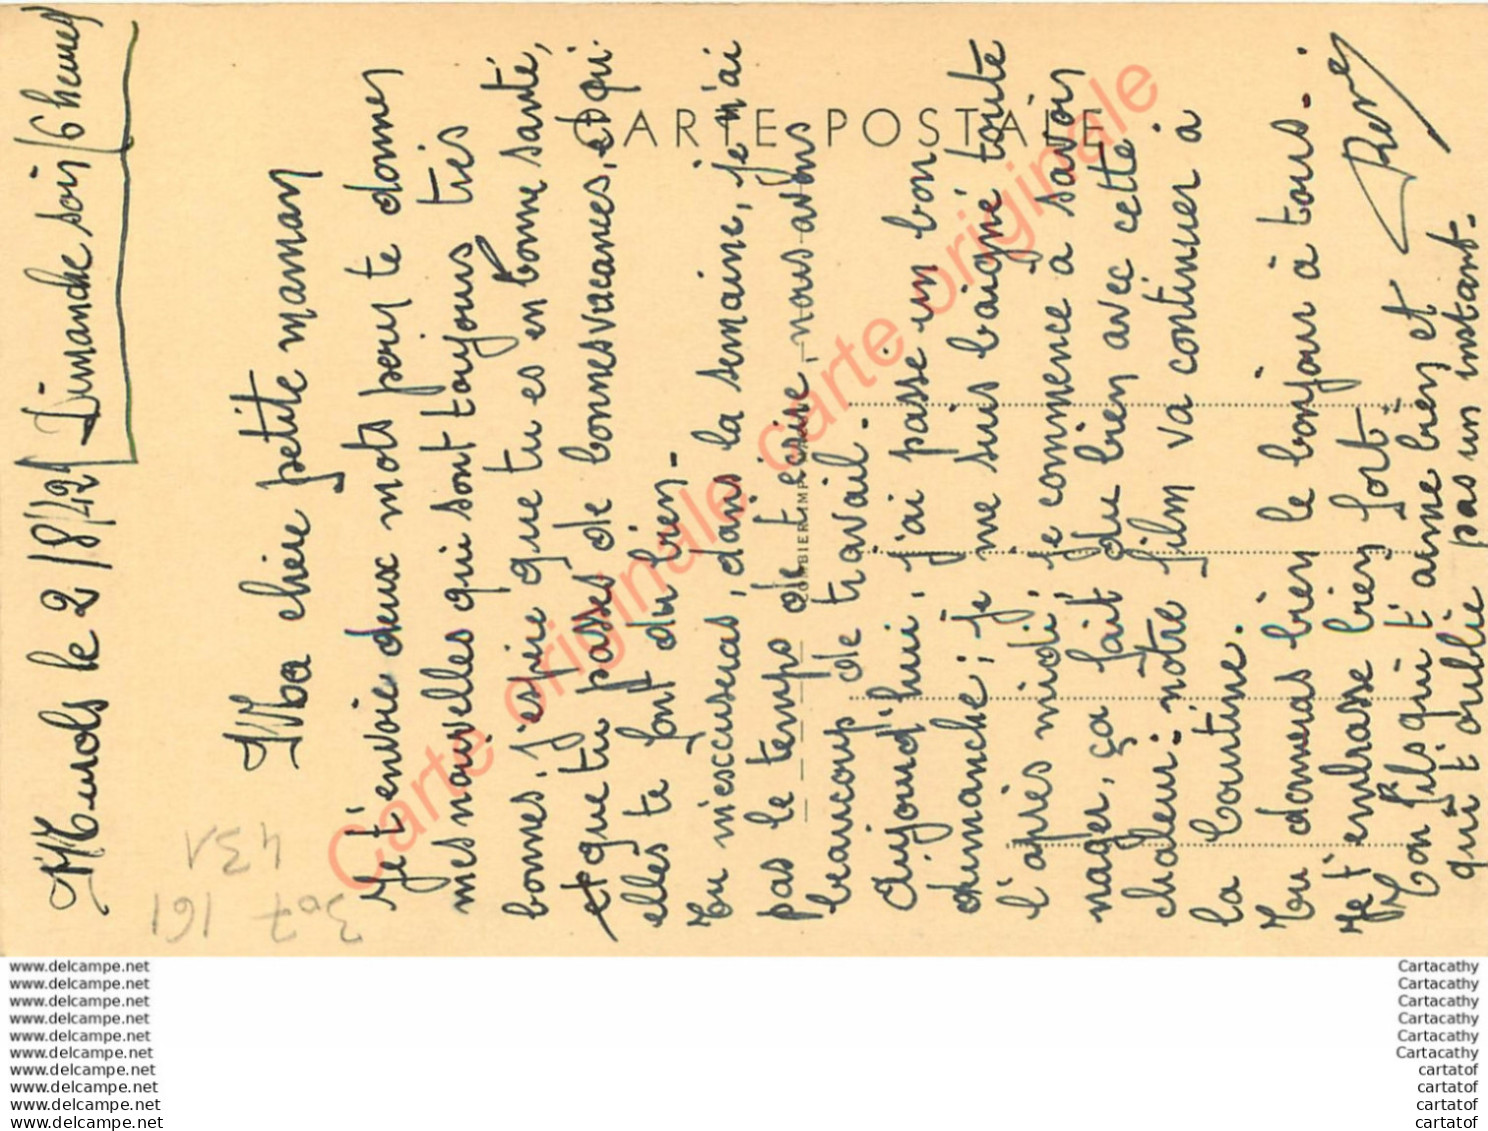 Meuols le 2/8/42 Dimanche soir/6 heures
Ma chère petite maman
Je t'envoie deux mots pour te donner
mes nouvelles qui sont toujours très
bonnes, j'espère que tu es en bonne santé,
et que tu passes de bonnes vacances, et qui
elles te font du bien -
Tu m'esccuseras, dans la semaine, je n'ai
pas le temps de t'ecrire, nous avons
beaucoup de travail.
Aujourd'hui, j'ai passé un bon
dimanche; je me suis baigné toute
l'après midi, je commence a savoir
nager, ça fait du bien avec cette
chaleur: nôtre film va continuer à
la Courtine.
Tu donneras bien le bonjour à tous.
Je t'embrasse bien fort
Ton fils qui t'aime bien et
qui t'oublie pas un instant.
René
CARTE POSTALE
COMBIER IMP
307 161
431
Carte originale carte originale
www.delcampe.net
www.delcampe.net
www.delcampe.net
www.delcampe.net
www.delcampe.net
www.delcampe.net
www.delcampe.net
www.delcampe.net
www.delcampe.net
www.delcampe.net
Cartacathy
Cartacathy
Cartacathy
Cartacathy
Cartacathy
Cartacathy
cartatof
cartatof
cartatof
cartatof